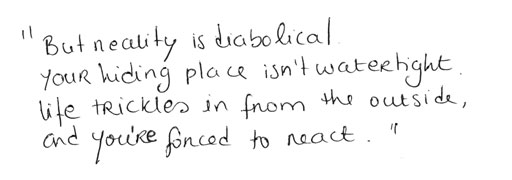 "But reality is diabolical.
Your hiding place isn't watertight.
life trickles in from the outside,
and you're forced to react."